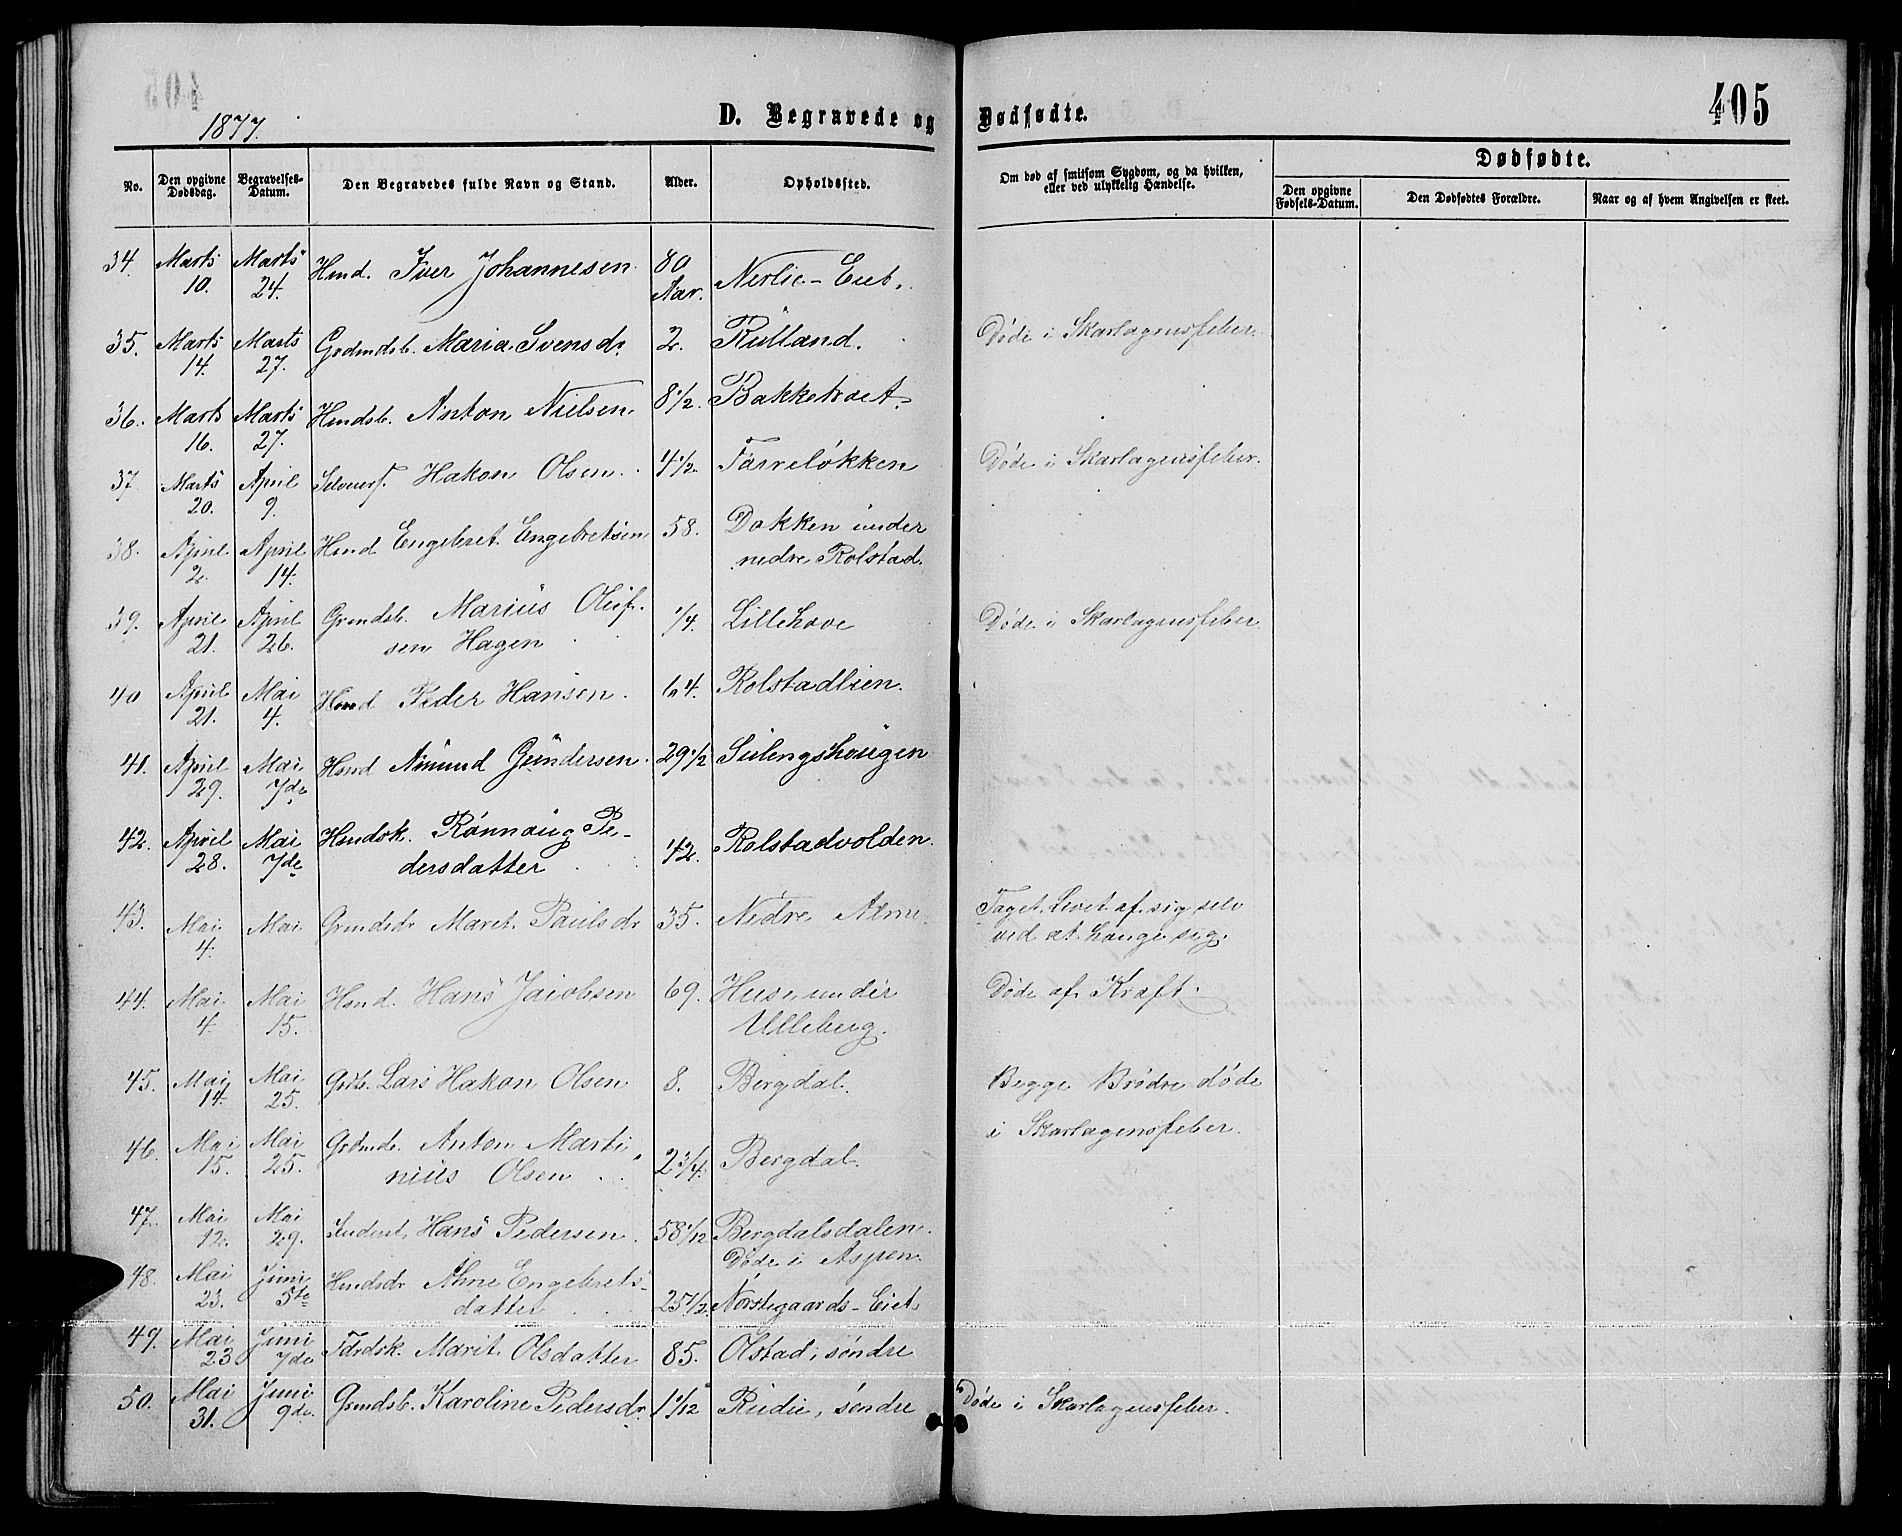 405
1877.
D. Begravede og Dødfødte.
405
No. Den opgivne Dødsdag. Begravelses-Datum. Den Begravedes fulde Navn og Stand. Alder. Opholdssted. Om død af smitsom Sygdom, og da hvilken, eller ved ulykkelig Hændelse. Dødfødte.
Den opgivne Fødsels-Datum. Den Dødfødtes Forældre. Naar og af hvem Angivelsen er skeet.
34. Marts 10. Marts 24. Hmd. Iver Johannesen 80 Aar. Nerlie-Eiet.
35. Marts 14. Marts 27. Grdmdsb. Maria Svensdr. 2. Rulland. Døde i Skarlagensfeber.
36. Marts 16. Marts 27. Hmdsb. Anton Nielsen 8 1/2. Bakketræet.
37 Marts 20. April 9. Hakon Olsen 4 1/2. Tørreløkken Døde i Skarlagensfeber.
38. April 2. April 14. Hmd Engebret Engebretsen 58. Dokken under
nedre Rolstad.
39. April 21. April 26. Grmdsb. Marius Oluf-
sen Hagen 1/4. Lillehove Døde i Skarlagensfeber
40 April 21. Mai 4. Hmd Peder Hansen. 64. Rolstadlien.
41. April 29. Mai 7de Hmd Amund Gundersen. 29 1/2 Sulengshougen
42. April 28. Mai 7de Hmdsk. Rønnaug Pe-
dersdatter 42. Rolstadvolden.
43. Mai 4. Mai Grmdsdr Maret Paulsdr 35. Nedre Alme Taget Livet af sig selv
ved at hænge sig.
44. Mai 4. Mai 15. Hmd. Hans Jacobsen 69. Huse under
Ulleberg. Døde af Kræft.
45. Mai 14. Mai 25. Grdb. Lars Hakon Olsen 8. Bergdal. Begge Brødre døde
46. Mai 15. Mai 25. Anton Marti-
nius Olsen 2 3/4. Bergdal. i Skarlagensfeber.
47. Mai 12. Mai 29. Hans Pedersen. 58 1/12 Bergdalsdalen.
Døde i Aspen.
48. Mai 23. Juni 5te Hmdsdr Ahne Engebrets-
datter 25 1/2 Norstegaards-Eiet.
49. Mai 23 Juni 7de Fdrdsk. Marit Olsdatter 85. Olstad, søndre
50. Mai 31. Juni 9de. Grmdsb. Karoline Pedersdr. 1 1/12 Rudie, søndre Døde i Skarlagensfeber.